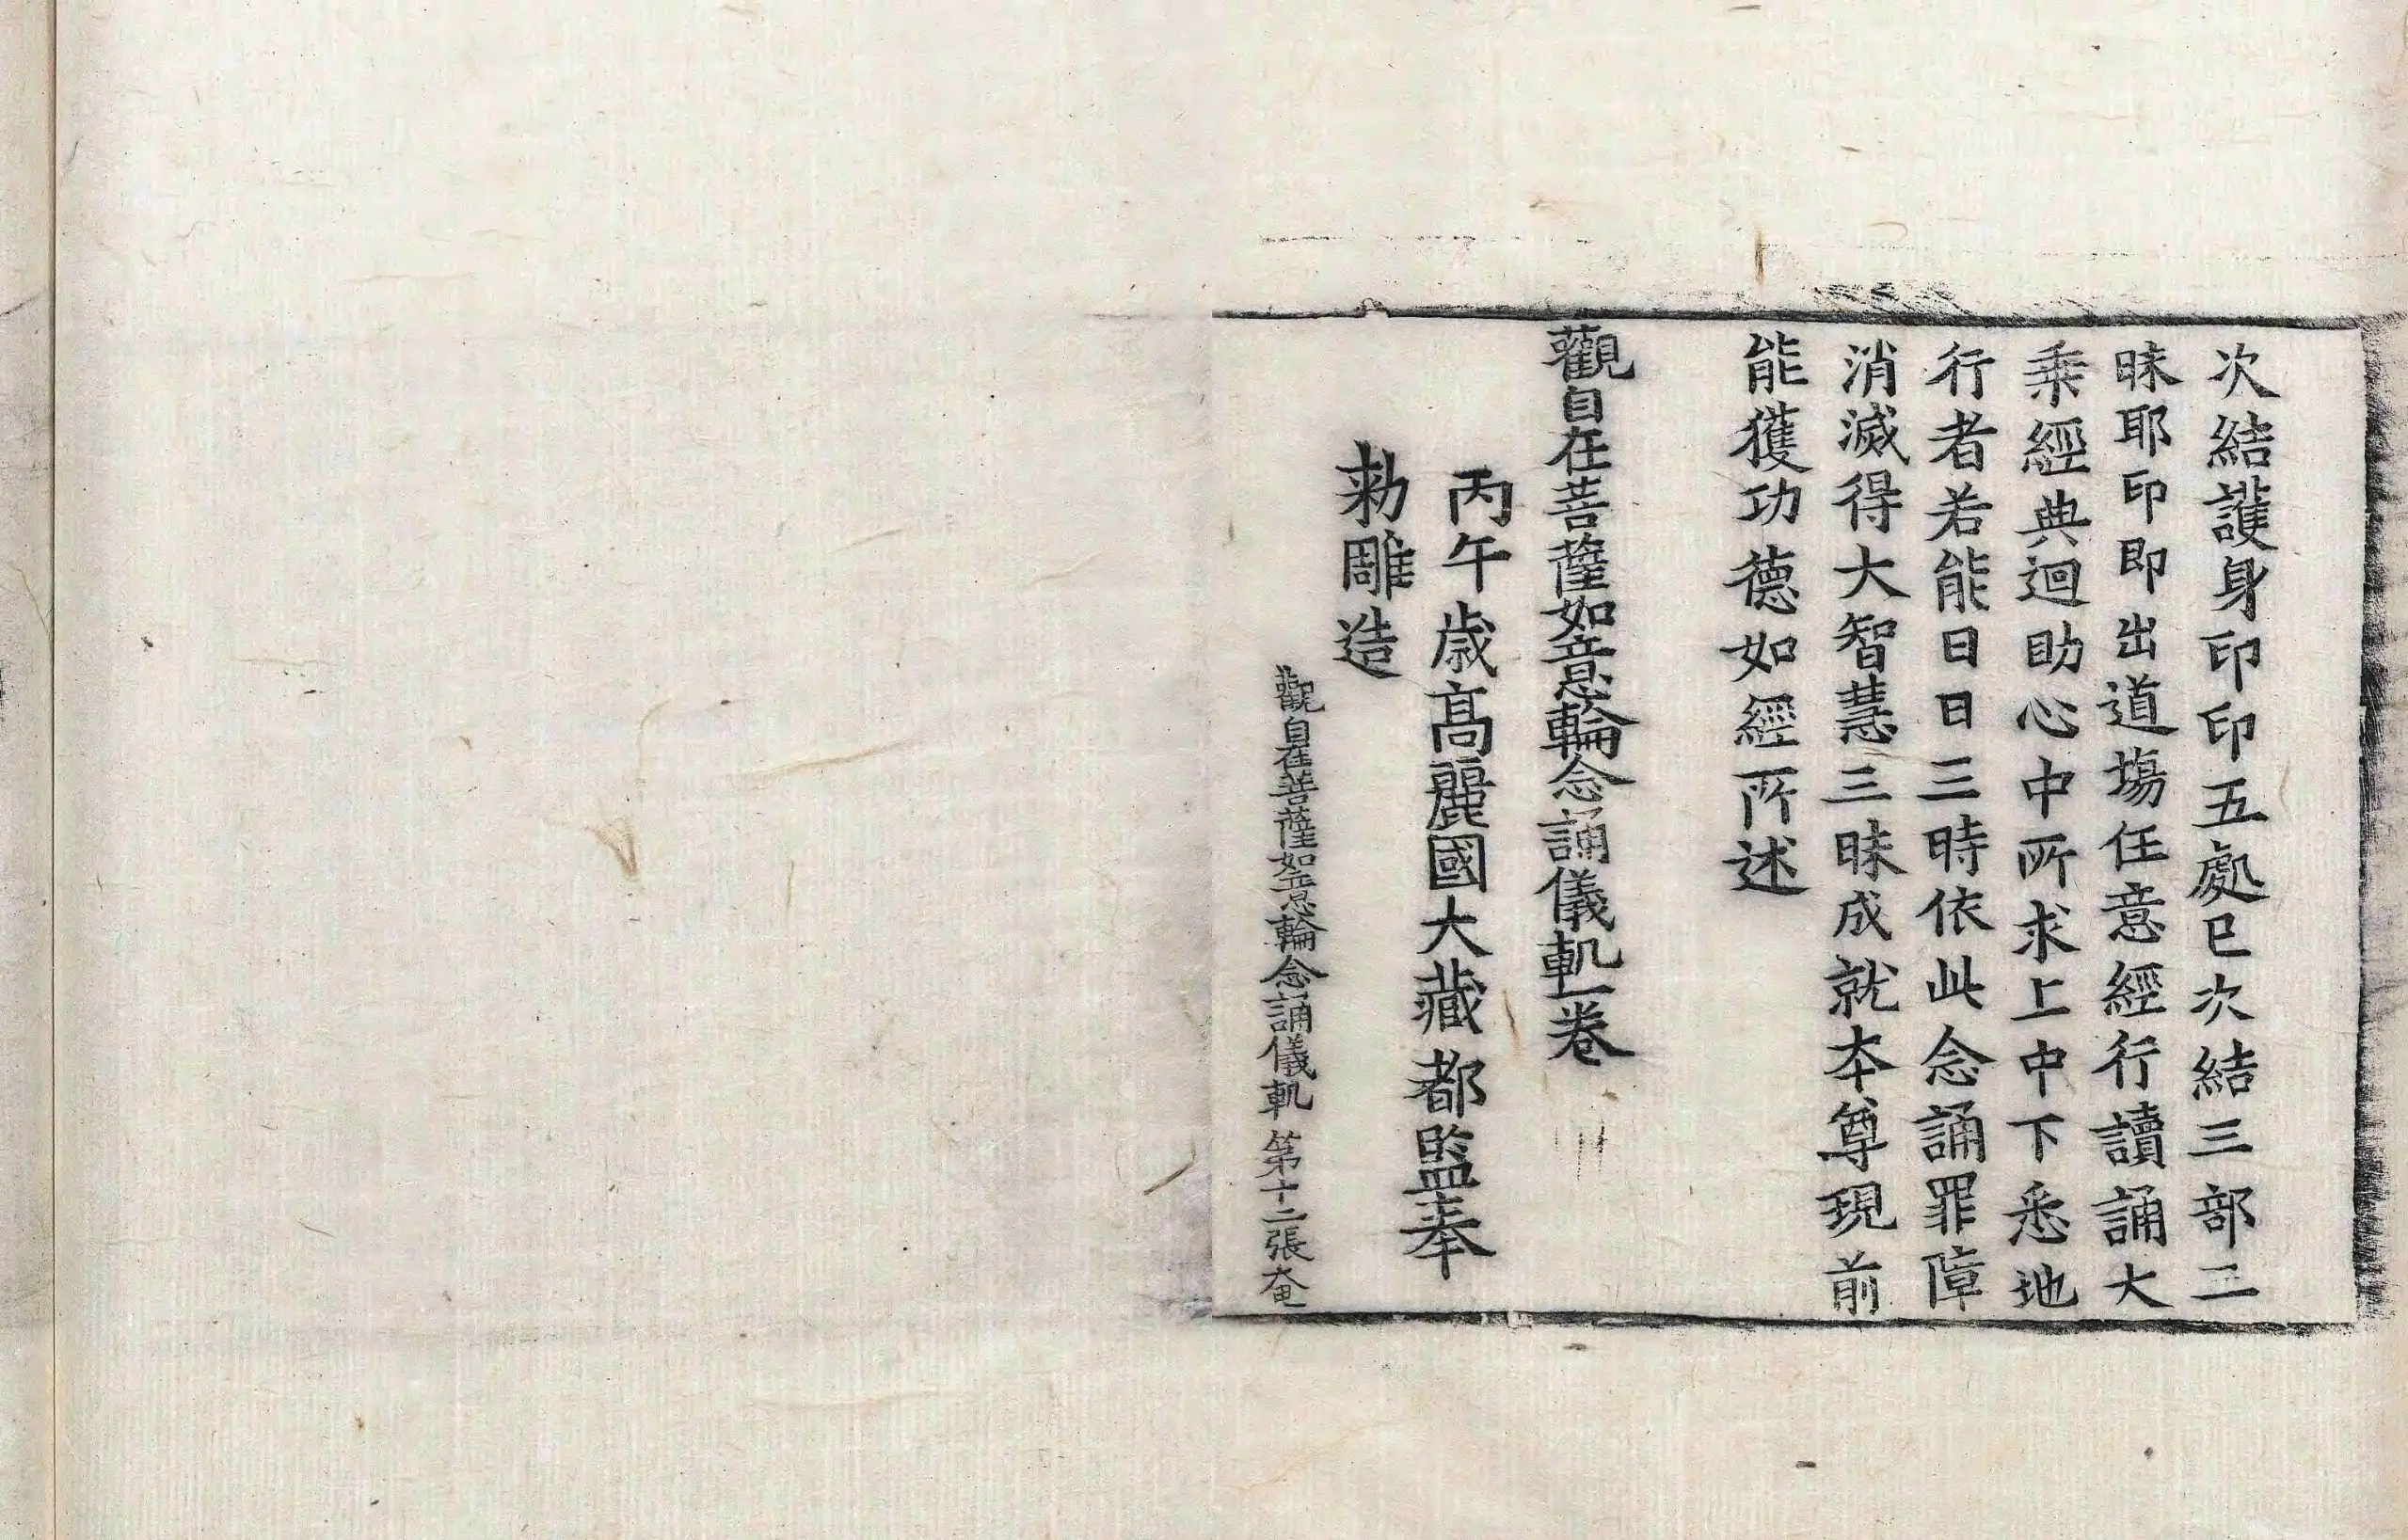 次結護身印印五處已次結三部三
昧耶印即出道場任意經行讀誦大
乘經典迴助心中所求上中下悉地
行者若能日日三時依此念誦罪障
消滅得大智慧三昧成就本尊現前
能獲功德如經所述
觀自在菩薩如意輪念誦儀軌一卷
丙午歳高麗國大藏都監奉
勑雕造
觀自在菩薩如意輪念誦儀軌 第十二張 奄